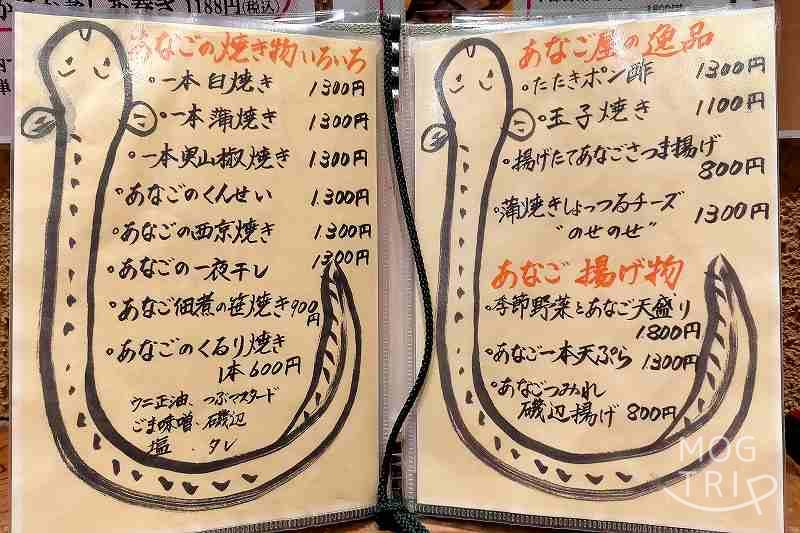 1188円(税込)
あなごの焼き物いろいろ
・一本白焼き 1300円
・一本蒲焼き 1300円
・一本実山椒焼き 1300円
・あなごのくんせい 1.300円
・あなごの西京焼き 1.300円
・あなごの一夜干し 1300円
・あなご佃煮の笹焼き 900円
・あなごのくるり焼き
1本600円
ウニ正油、つぶマスタード
ごま味噌、磯辺
塩、タレ
あなご屋の逸品
・たたきポン酢 1300円
・玉子焼き 1100円
・揚げたてあなごさつま揚げ
800円
・蒲焼きしょっつるチーズ
"のせのせ" 1300円
あなご揚げ物
・季節野菜とあなご天盛り
1800円
・あなご一本天ぷら 1300円
・あなごつみれ
磯辺揚げ 800円
MOG
TRIP